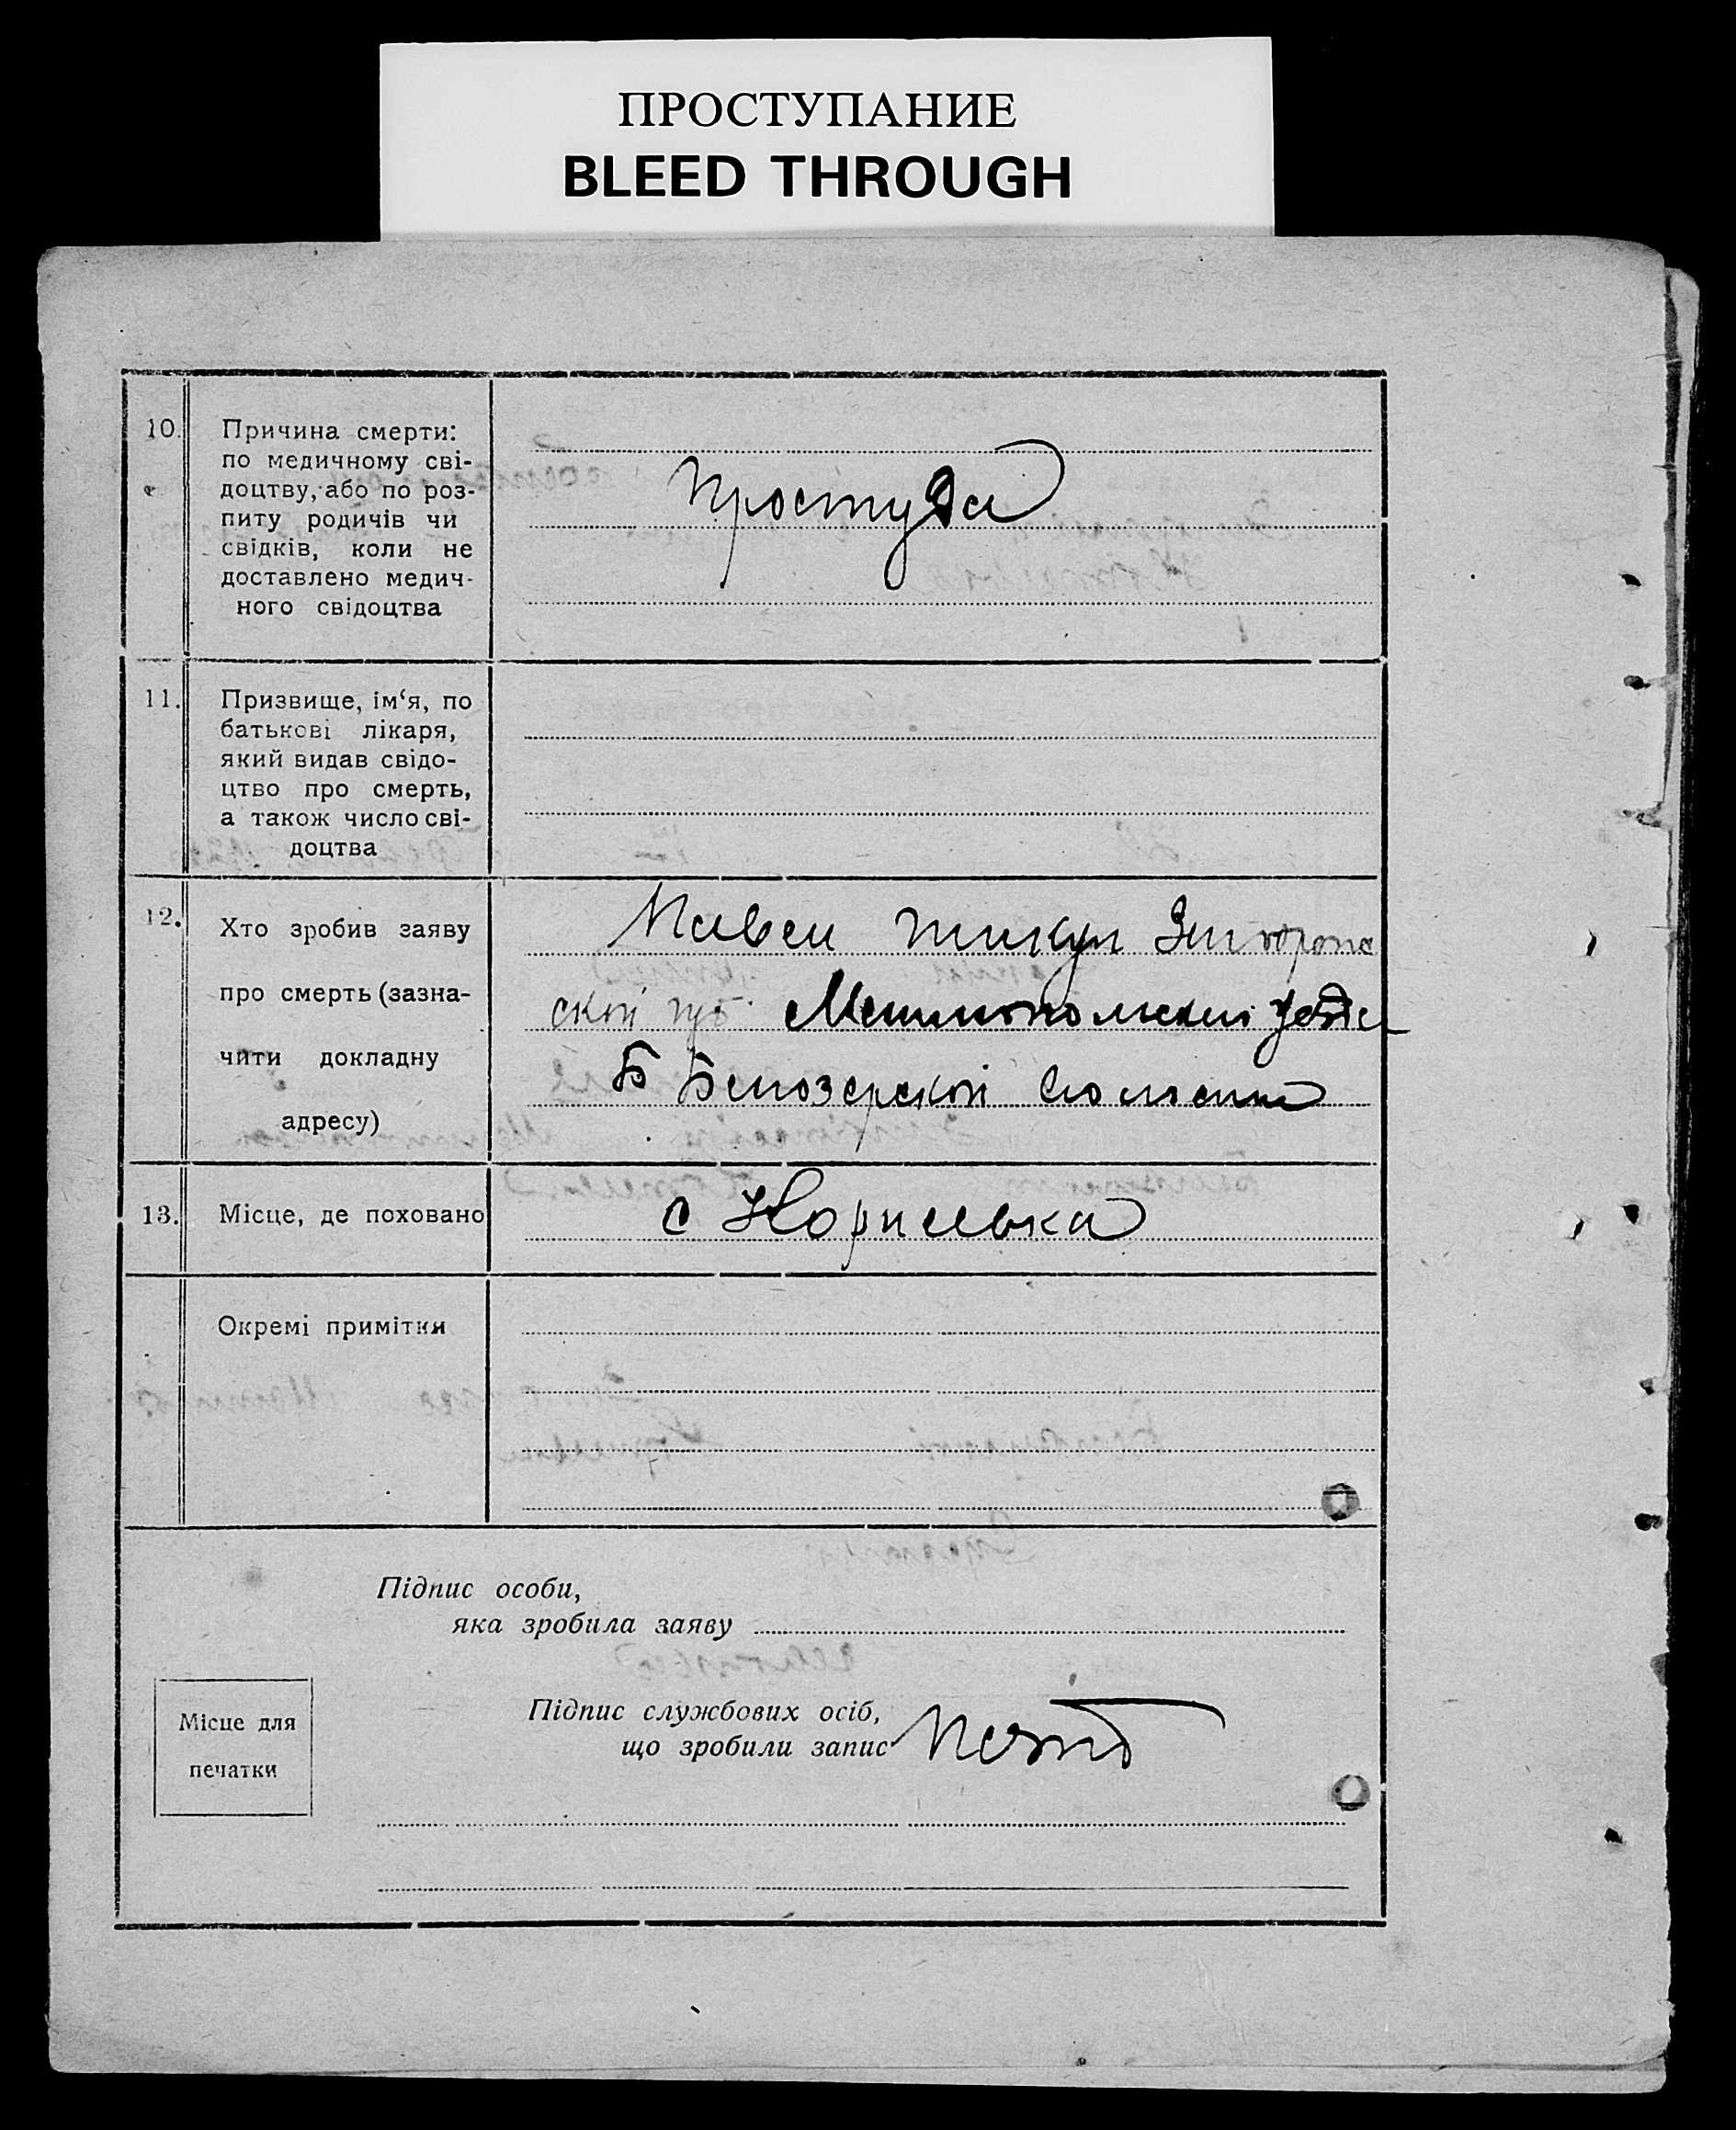 ПРОСТУПАНИЕ
BLEED THROUGH
10.
Причина смерти:
по медичному сві-
доцтву, або по роз-
питу родичів чи
свідків, коли не
доставлено медич-
ного свідоцтва
простуда
11.
Призвище, ім‘я, по
батькові лікаря,
який видав свідо-
цтво про смерть,
а також число сві-
доцтва
12.
Хто зробив заяву
про смерть (зазна-
чити докладну
адресу)
Павел
ской губ
Б Белозерской
13.
Місце, де поховано
с
Окремі примітки
Підпис особи,
яка зробила заяву
Місце для
печатки
Підпис службових осіб,
що зробили запис